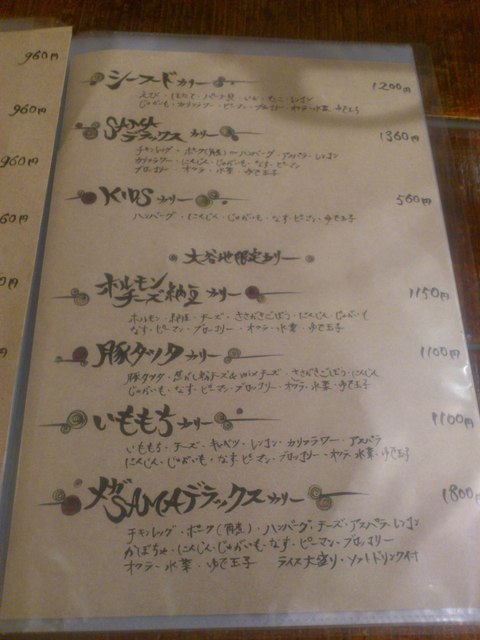 960円
960円
960円
60円
シーフードカリー 1200円
えび・ほたて・パーナ貝・いか・たこ・レンコン
じゃがいも・カリフラワー・ピーマン・ブロッコリー・オクラ・水菜・ゆで玉子
SAMAデラックスカリー 1360円
チキンレッグ・ポーク(角煮)・ハンバーグ・アスパラ・レンコン
カリフラワー・にんじん・じゃがいも・なす・ピーマン
ブロッコリー・オクラ・水菜・ゆで玉子
KIDSカリー 560円
ハンバーグ・にんじん・じゃがいも・なす・ピーマン・ゆで玉子
大谷地限定カリー
ホルモンチーズ納豆カリー 1150円
ホルモン・納豆・チーズ・ささがきごぼう・にんじん・じゃがいも
なす・ピーマン・ブロッコリー・オクラ・水菜・ゆで玉子
豚タツタカリー 1100円
豚タツタ・チーズ・ささがきごぼう・にんじん
じゃがいも・なす・ピーマン・ブロッコリー・オクラ・水菜・ゆで玉子
いももちカリー 1100円
いももち・チーズ・キャベツ・レンコン・カリフラワー・アスパラ
にんじん・じゃがいも・なす・ピーマン・ブロッコリー・オクラ・水菜・ゆで玉子
メガSAMAデラックスカリー 1800円
チキンレッグ・ポーク(角煮)・ハンバーグ・チーズ・アスパラ・レンコン
かぼちゃ・にんじん・じゃがいも・なす・ピーマン・ブロッコリー
オクラ・水菜・ゆで玉子 ライス大盛り・ソフトドリンク付